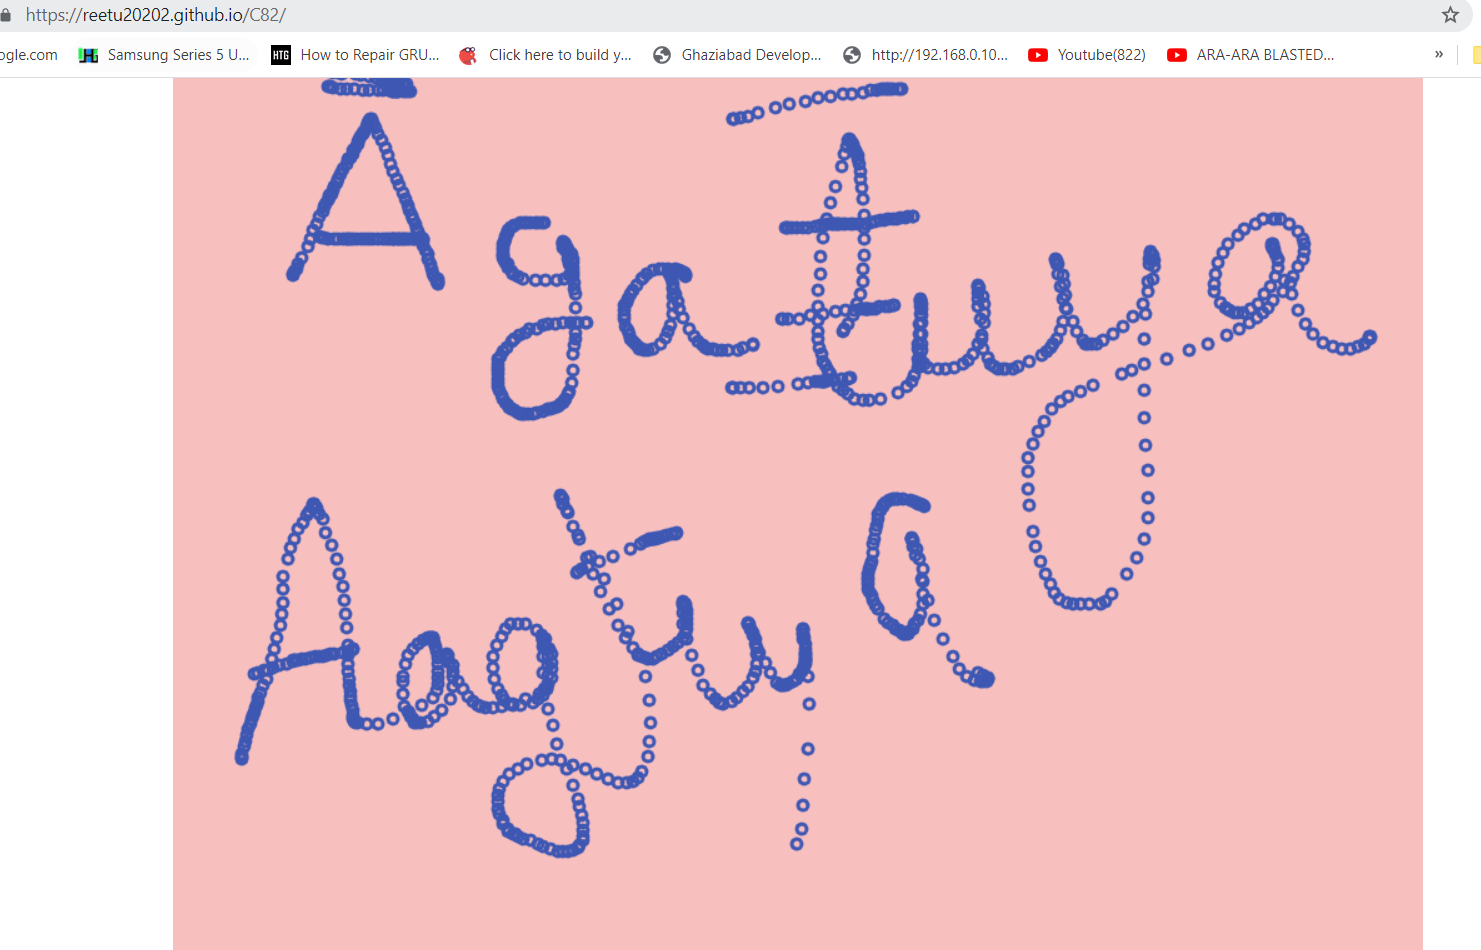 https://reetu20202.github.io/C82/
ogle.com Samsung Series 5 U... HTG How to Repair GRU... Click here to build y... Ghaziabad Develop... http://192.168.0.10... Youtube(822) ARA-ARA BLASTED... »
Agatuya
Aagtuya